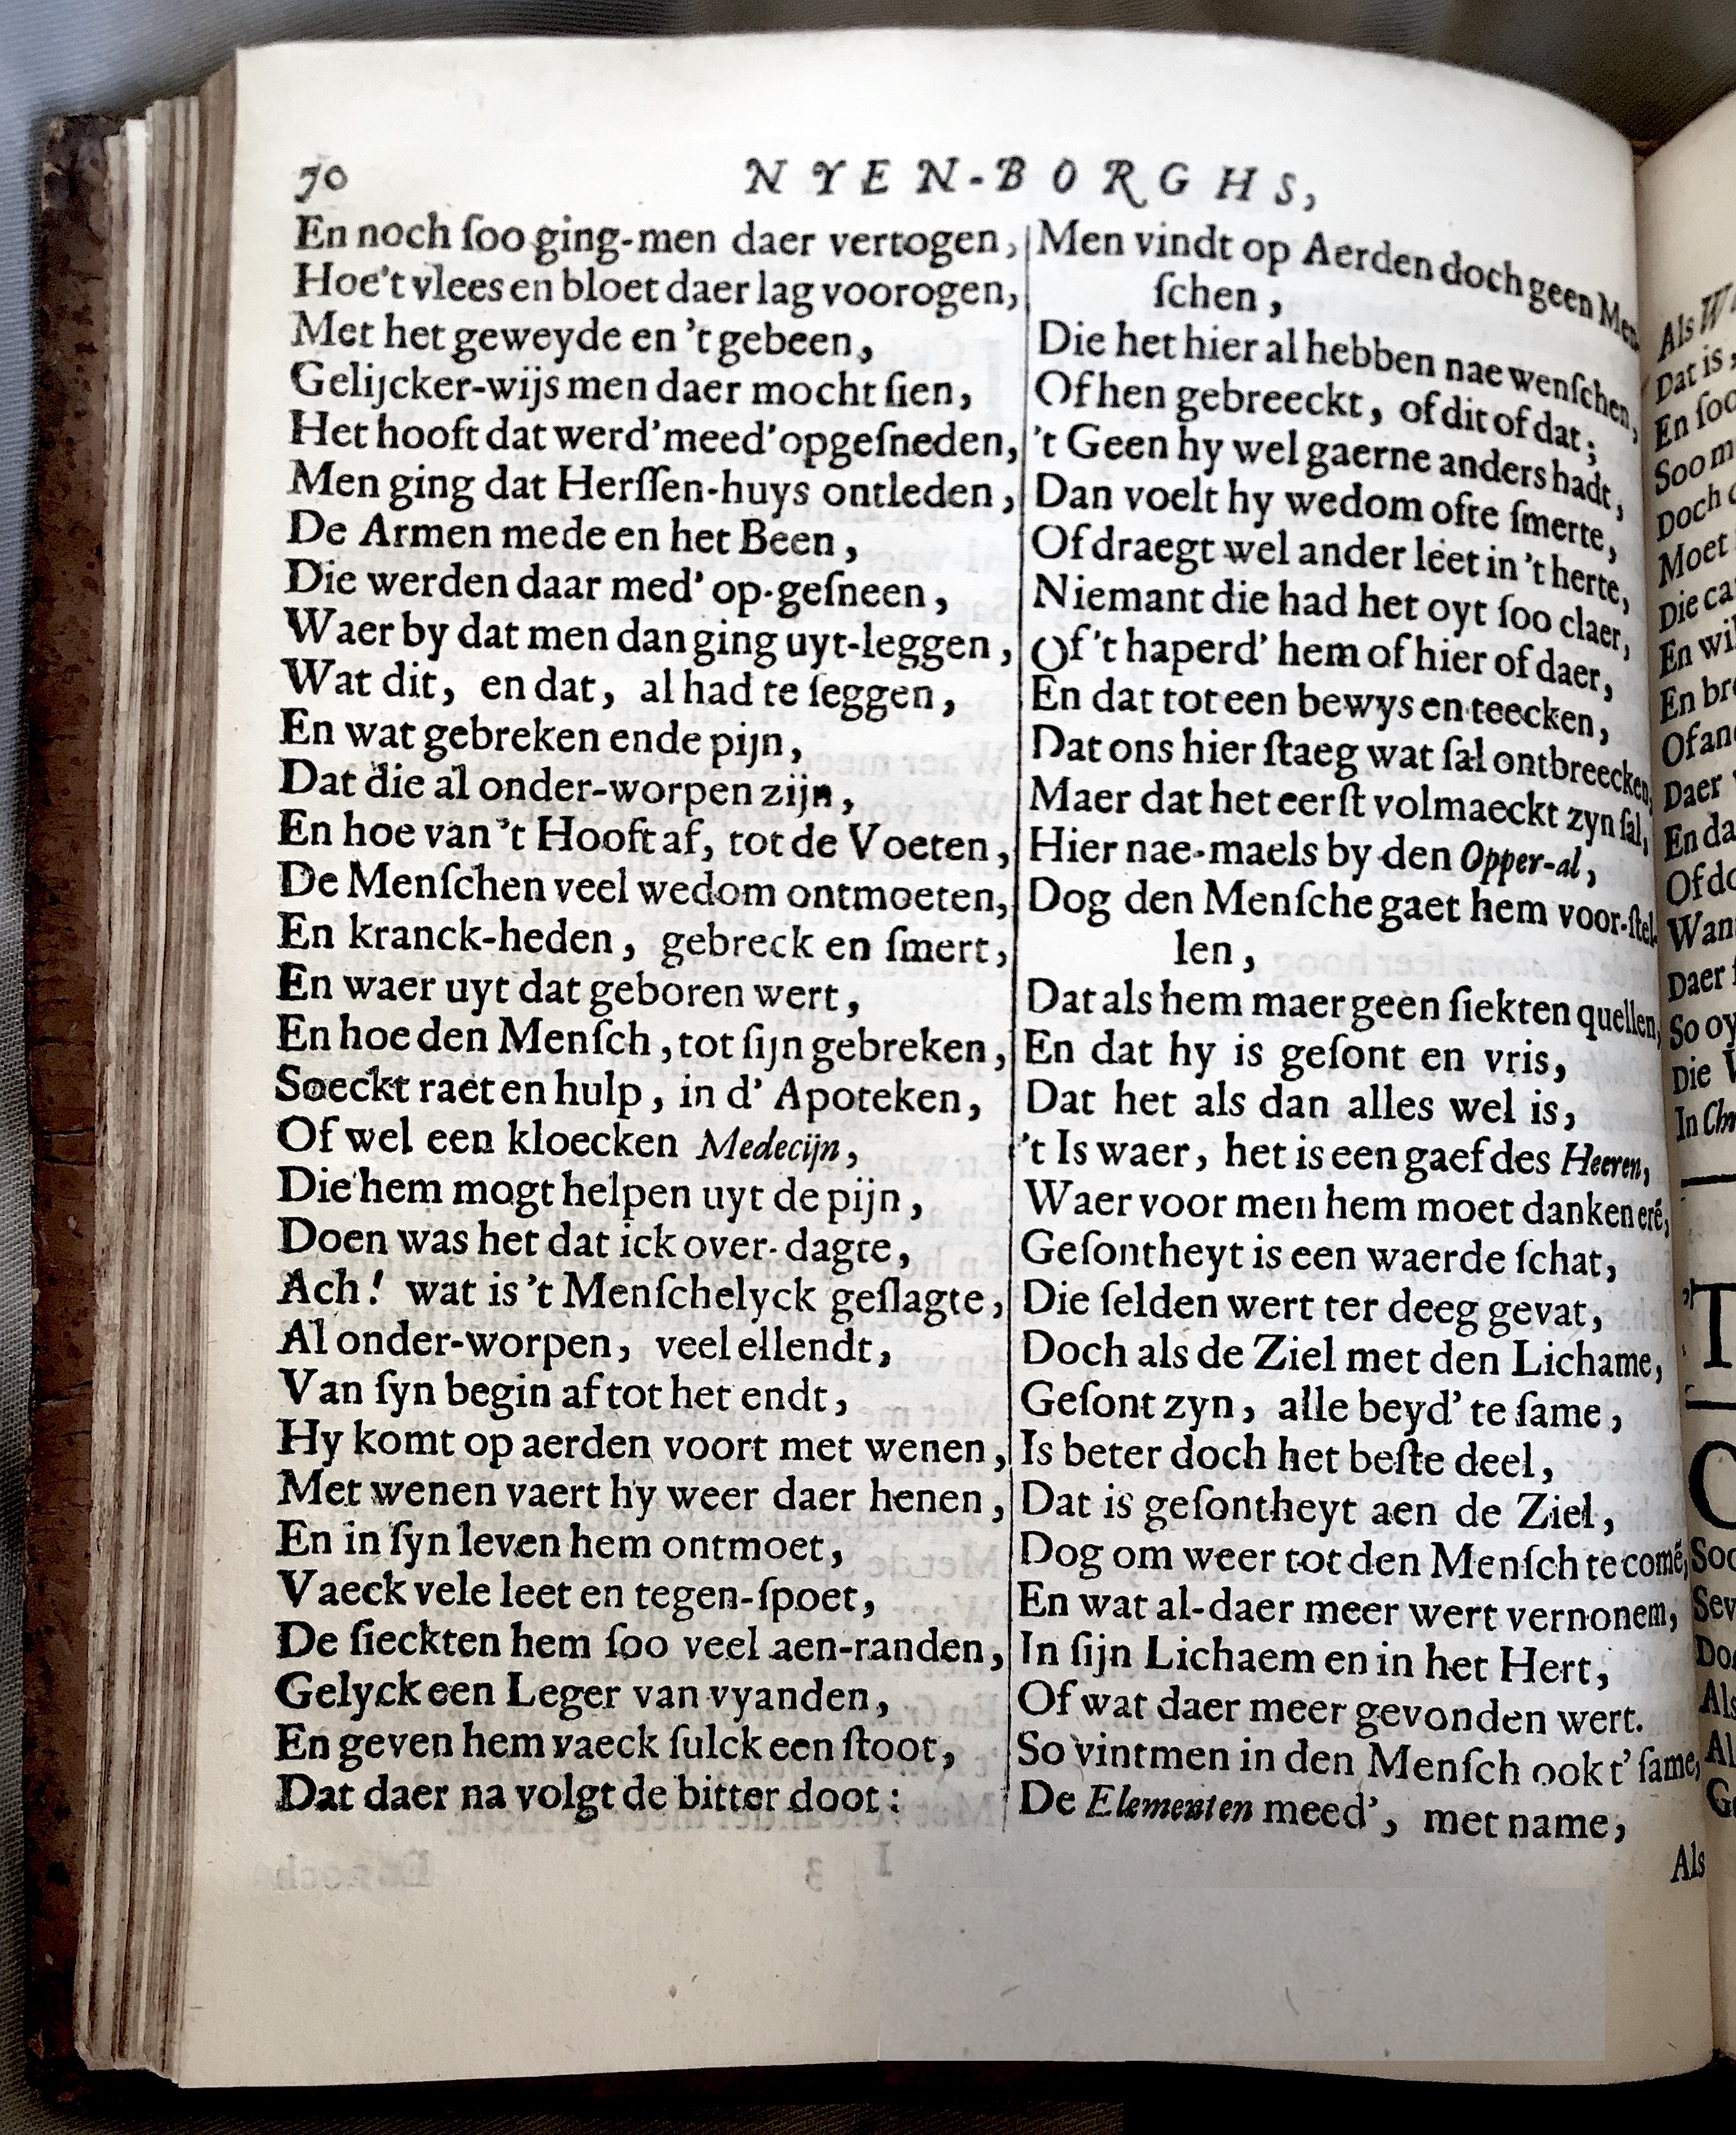 70
NYEN-BORGHS,
En noch ſoo ging-men daer vertogen,
Hoe't vlees en bloet daer lag voorogen,
Met het geweyde en 't gebeen,
Gelijcker-wijs men daer mocht ſien,
Het hooft dat werd' meed' opgeſneden,
Men ging dat Herſſen-huys ontleden,
De Armen mede en het Been,
Die werden daar med' op-geſneen,
Waer by dat men dan ging uyt-leggen,
Wat dit, en dat, al had te ſeggen,
En wat gebreken ende pijn,
Dat die al onder-worpen zijn,
En hoe van 't Hooft af, tot de Voeten,
De Menſchen veel wedom ontmoeten,
En kranck-heden, gebreck en ſmert,
En waer uyt dat geboren wert,
En hoe den Menſch, tot ſijn gebreken,
Soeckt raet en hulp, in d' Apoteken,
Of wel een kloecken Medecijn,
Die hem mogt helpen uyt de pijn,
Doen was het dat ick over-dagte,
Ach! wat is 't Menſchelyck geſlagte,
Al onder-worpen, veel ellendt,
Van ſyn begin af tot het endt,
Hy komt op aerden voort met wenen,
Met wenen vaert hy weer daer henen,
En in ſyn leven hem ontmoet,
Vaeck vele leet en tegen-ſpoet,
De ſieckten hem ſoo veel aen-randen,
Gelyck een Leger van vyanden,
En geven hem vaeck ſulck een ſtoot,
Dat daer na volgt de bitter doot:
Men vindt op Aerden doch geen Men-
ſchen,
Die het hier al hebben nae wenſchen,
Of hen gebreeckt, of dit of dat;
't Geen hy wel gaerne anders hadt,
Dan voelt hy wedom ofte ſmerte,
Of draegt wel ander leet in 't herte,
Niemant die had het oyt ſoo claer,
Of 't haperd' hem of hier of daer,
En dat tot een bewys en teecken,
Dat ons hier ſtaeg wat ſal ontbreecken,
Maer dat het eerſt volmaeckt zyn ſal,
Hier nae-maels by den Opper-al,
Dog den Menſche gaet hem voor-ſtel-
len,
Dat als hem maer geen ſiekten quellen,
En dat hy is geſont en vris,
Dat het als dan alles wel is,
't Is waer, het is een gaef des Heeren,
Waer voor men hem moet danken erē,
Geſontheyt is een waerde ſchat,
Die ſelden wert ter deeg gevat,
Doch als de Ziel met den Lichame,
Geſont zyn, alle beyd' te ſame,
Is beter doch het beſte deel,
Dat is geſontheyt aen de Ziel,
Dog om weer tot den Menſch te comē,
En wat al-daer meer wert vernonem,
In ſijn Lichaem en in het Hert,
Of wat daer meer gevonden wert.
So vintmen in den Menſch ook t' ſame,
De Elementen meed', met name,
Als
Als
Dat is,
En ſoo
Soo
Doch
Moet
Die
En
En
Of
Daer
En
Of
Wan
Daer
So
Die
In